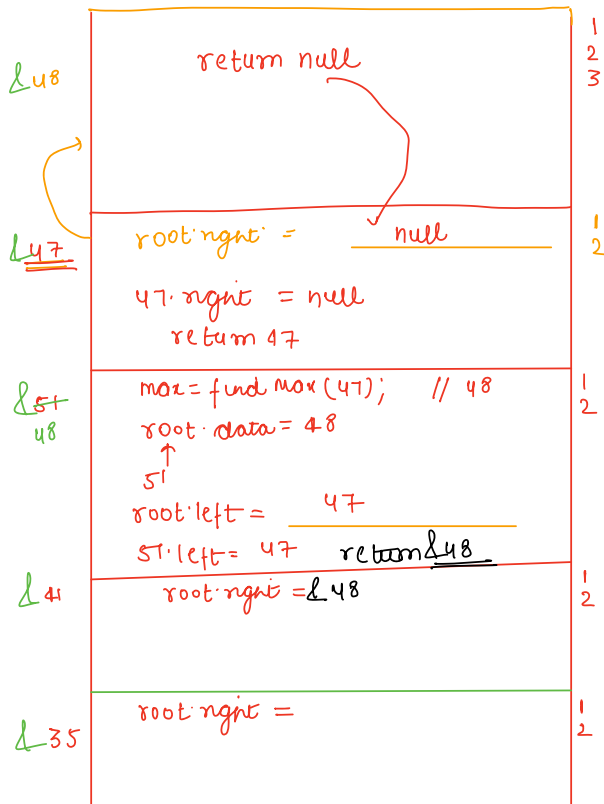 1
return null
2
& 48
3
root.right = null
1
2
& 47
47.right = null
return 47
max = find Max (47); // 48
1
& 51
2
48
root.data = 48
51
root.left = 47
51.left = 47 return &48
& 41
root.right = & 48
1
2
root.right =
1
& 35
2